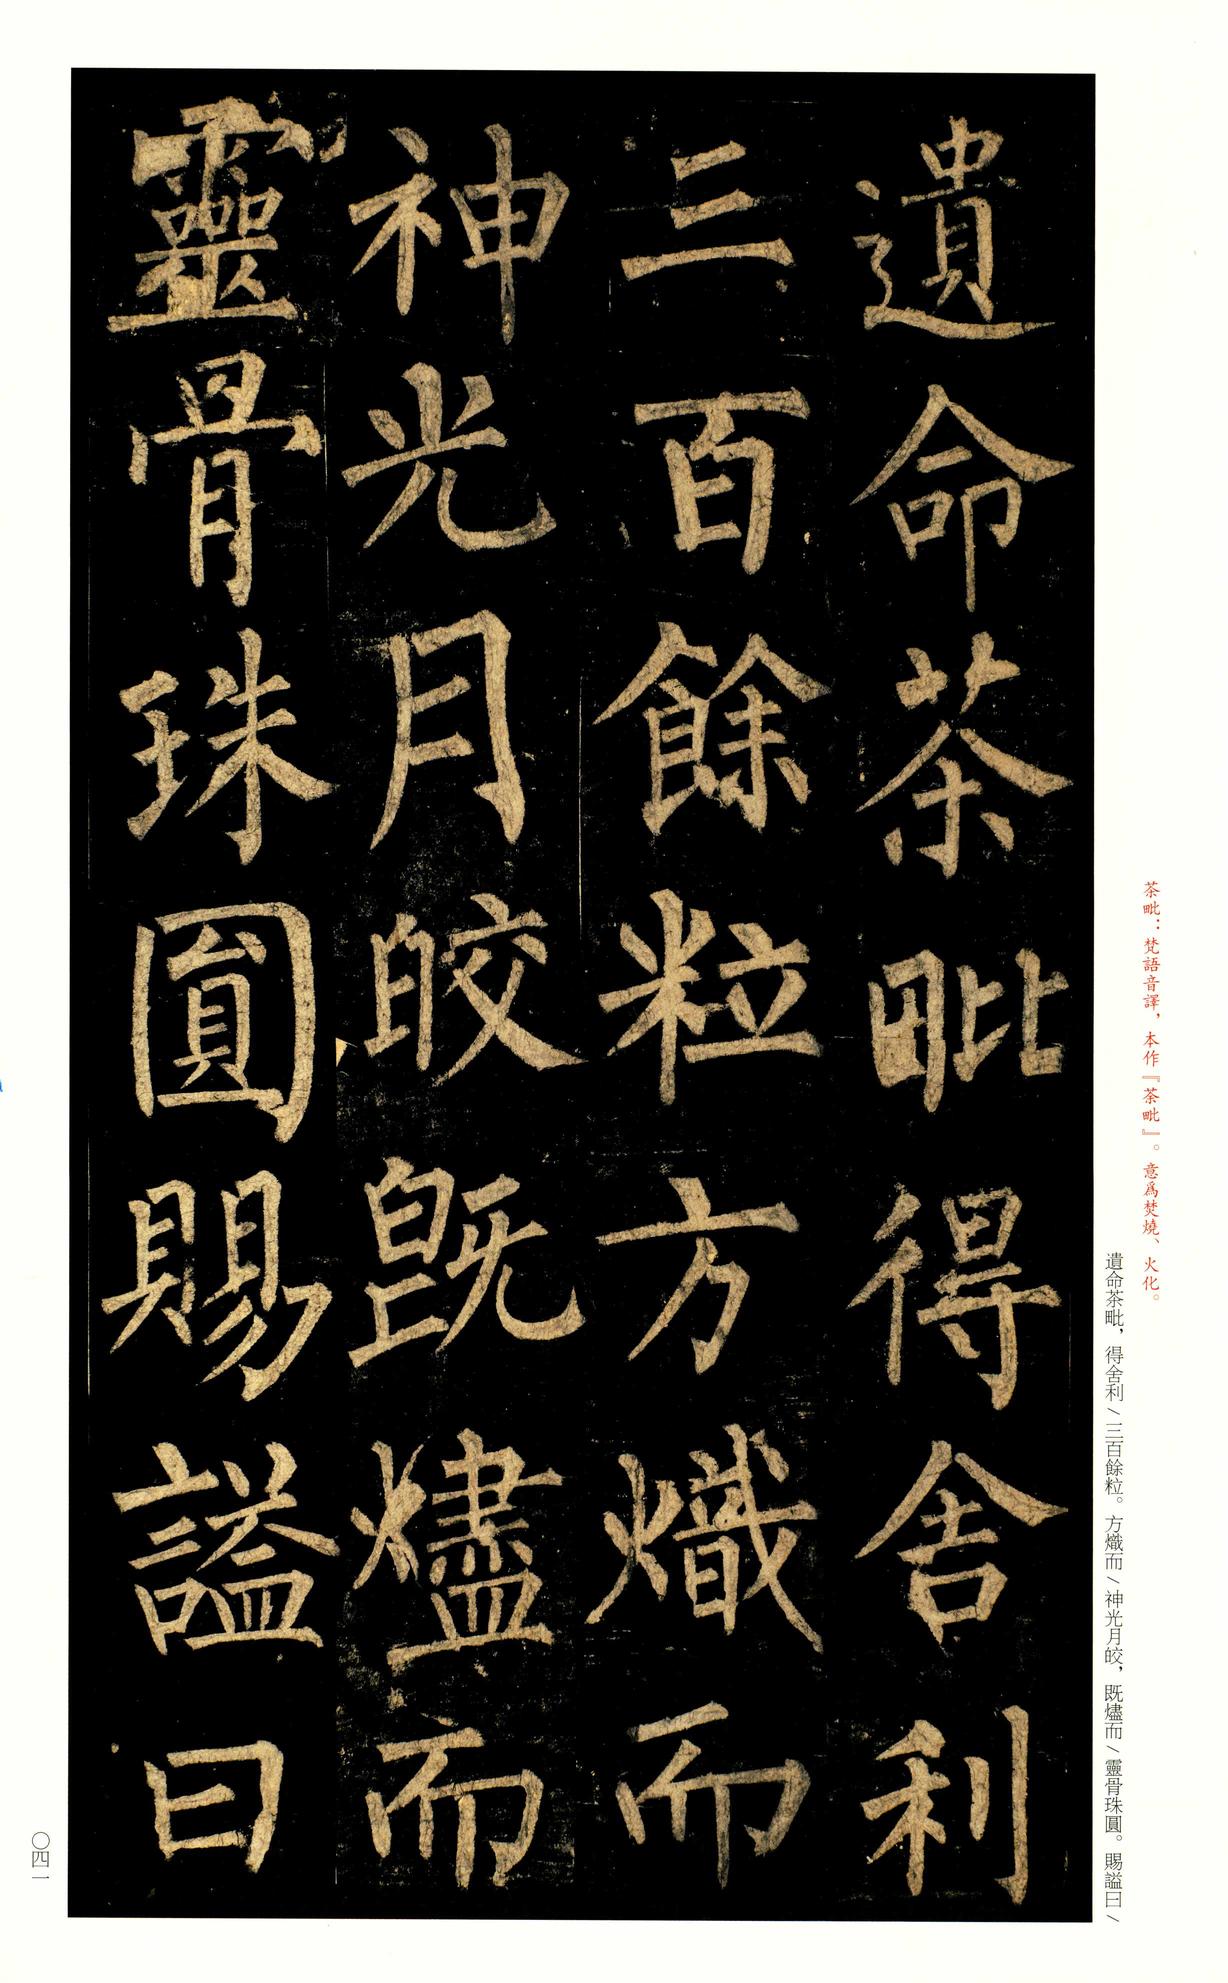 茶毗：梵語音譯，本作『荼毗』。意爲焚燒、火化。
遺命茶毗，得舍利／三百餘粒。方熾而／神光月皎，既燼而／靈骨珠圓。賜謚曰／
遺命茶毗得舍利
三百餘粒方熾而
神光月皎既燼而
靈骨珠圓賜謚曰
〇四一